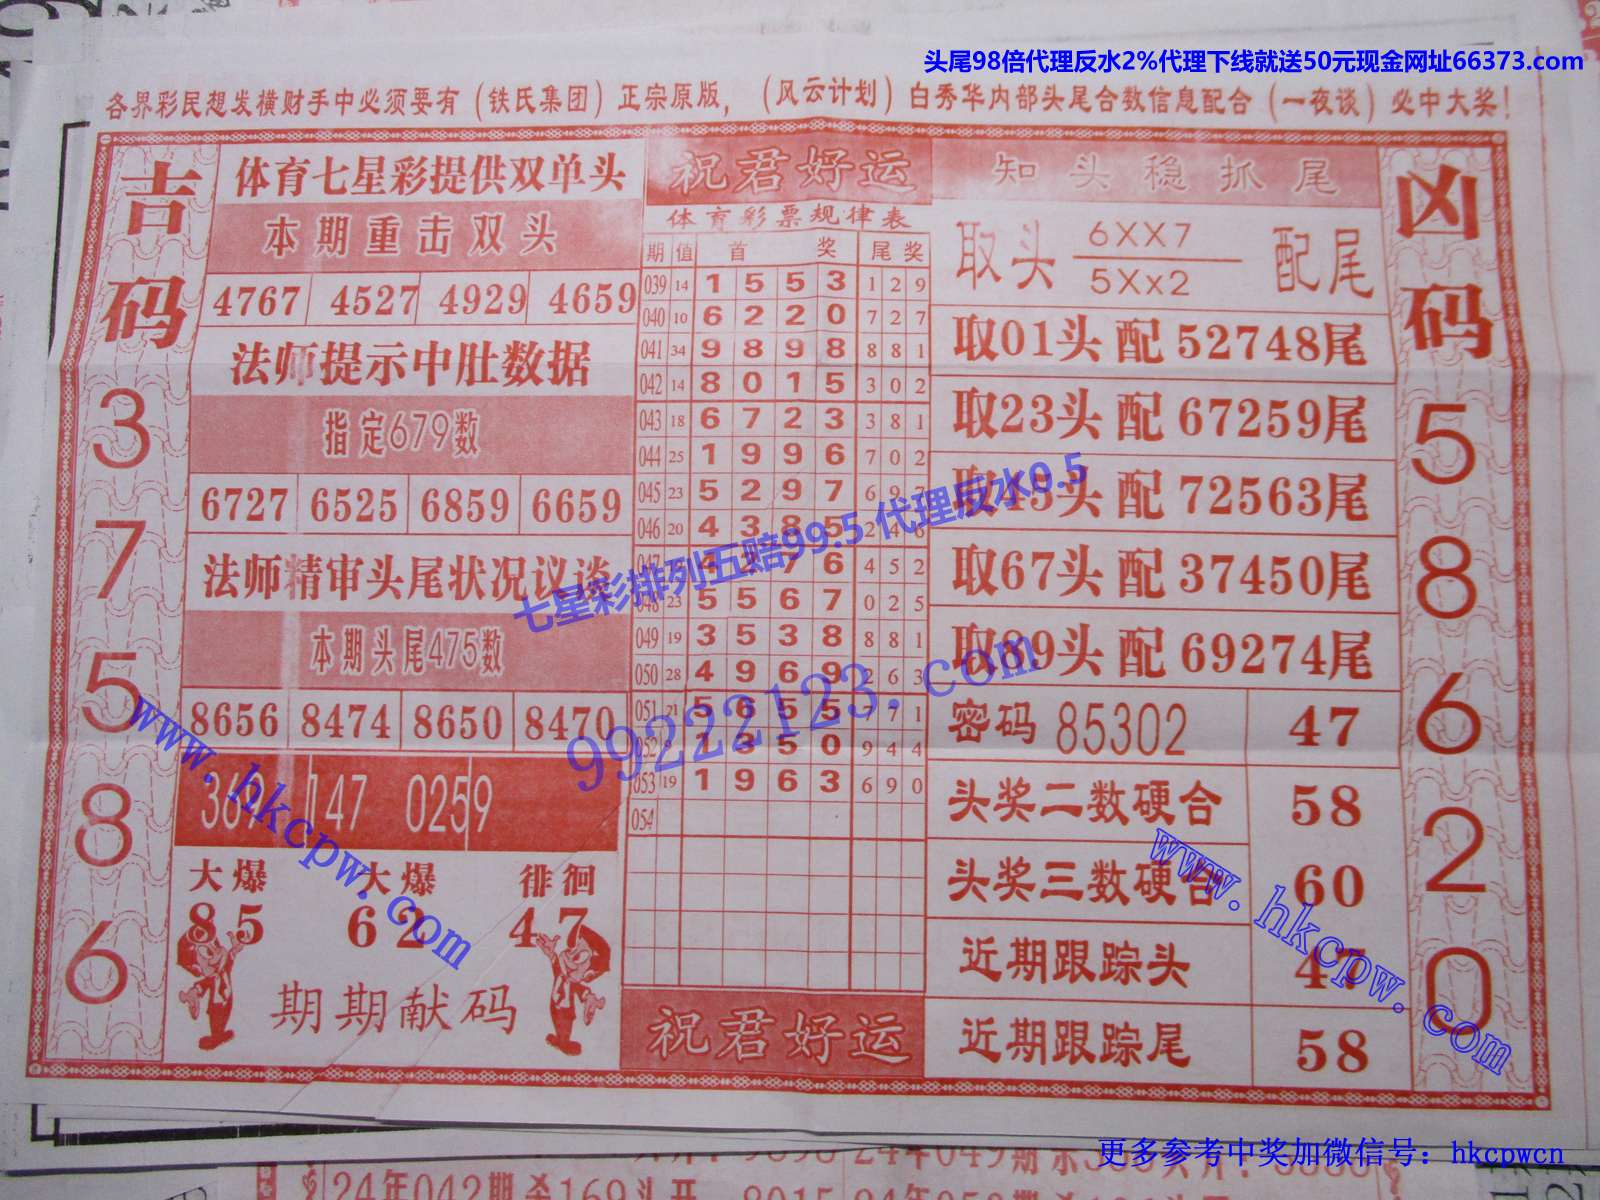 头尾98倍代理反水2%代理下线就送50元现金网址66373.com
各界彩民想发横财手中必须要有（铁氏集团）正宗原版，（风云计划）白秀华内部头尾合数信息配合（一夜谈）必中大奖！
吉码
3
7
5
8
6
体育七星彩提供双单头
本期重击双头
4767 4527 4929 4659
法师提示中肚数据
指定679数
6727 6525 6859 6659
法师精审头尾状况议谈
本期头尾475数
8656 8474 8650 8470
369 147 0259
大爆 大爆 徘徊
85 62 47
期期献码
祝君好运
体育彩票规律表
期 值 首 奖 尾 奖
039 14 1 5 5 3 1 2 9
040 10 6 2 2 0 7 2 7
041 34 9 8 9 8 8 8 1
042 14 8 0 1 5 3 0 2
043 18 6 7 2 3 3 8 1
044 25 1 9 9 6 7 0 2
045 23 5 2 9 7 6 9 7
046 20 4 3 8 5 2 4 6
047 4 2 7 6 4 5 2
048 23 5 5 6 7 0 2 5
049 19 3 5 3 8 8 8 1
050 28 4 9 6 9 2 6 3
051 21 5 6 5 5 7 7 1
052 9 1 3 5 0 9 4 4
053 19 1 9 6 3 6 9 0
054
祝君好运
知头稳抓尾
取头 6XX7 配尾
5Xx2
取01头 配 52748尾
取23头 配 67259尾
取45头 配 72563尾
取67头 配 37450尾
取89头 配 69274尾
密码 85302 47
头奖二数硬合 58
头奖三数硬合 60
近期跟踪头 47
近期跟踪尾 58
凶码
5
8
6
2
0
七星彩排列五赔99.5 代理反水0.5
99222123.com
www.hkcpw.com
www.hkcpw.com
更多参考中奖加微信号：hkcpwcn
24年042期杀169头开